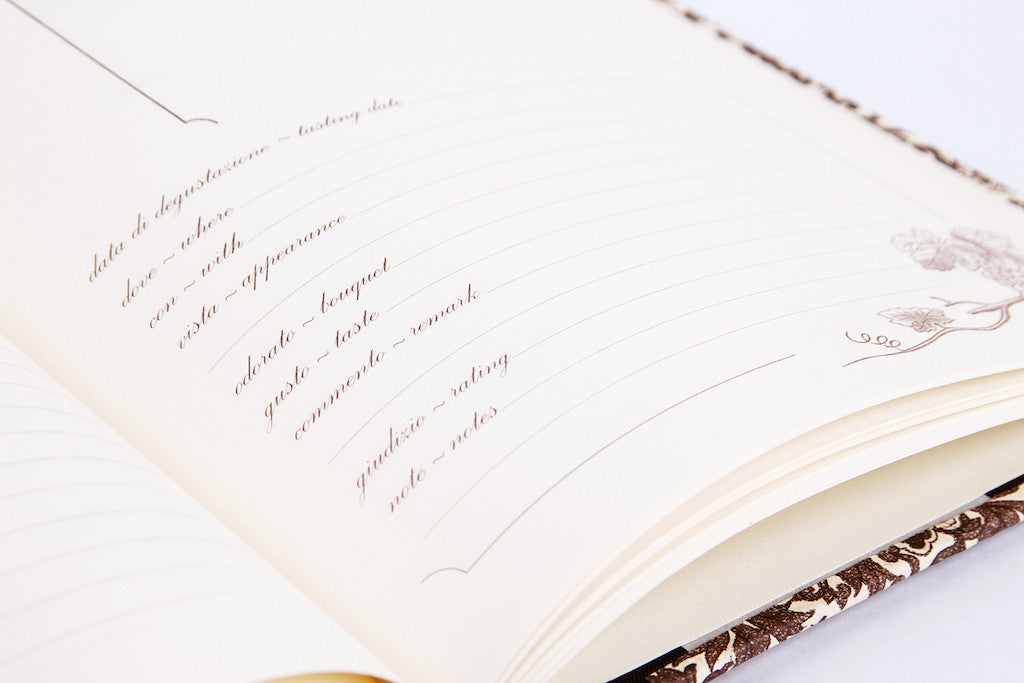 data di degustazione ~ tasting date
dove ~ where
con ~ with
vista ~ appearance
odorato ~ bouquet
gusto ~ taste
commento ~ remark
giudizio ~ rating
note ~ notes